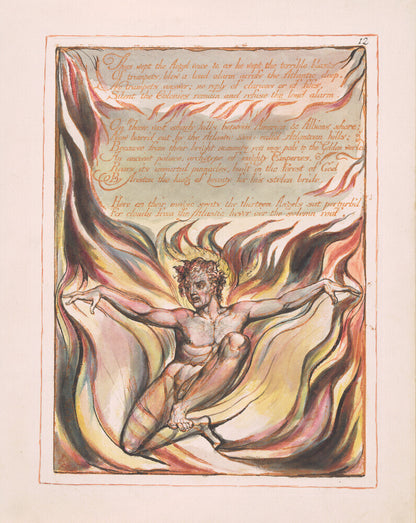 12
Thus wept the Angel voice & as he wept the terrible blasts
Of trumpets, blew a loud alarm across the Atlantic deep.
No trumpets answer; no reply of clarions or of fifes,
Silent the Colonies remain and refuse the loud alarm.
On those vast shady hills between America & Albions shore;
Now barred out by the Atlantic sea: call'd Atlantean hills:
Because from their bright summits you may pass to the Golden world
An ancient palace, archetype of mighty Emperies,
Rears its immortal pinnacles, built in the forest of God
By Ariston the king of beauty for his stolen bride,
Here on their magic seats the thirteen Angels sat perturb'd
For clouds from the Atlantic hover o'er the solemn roof.